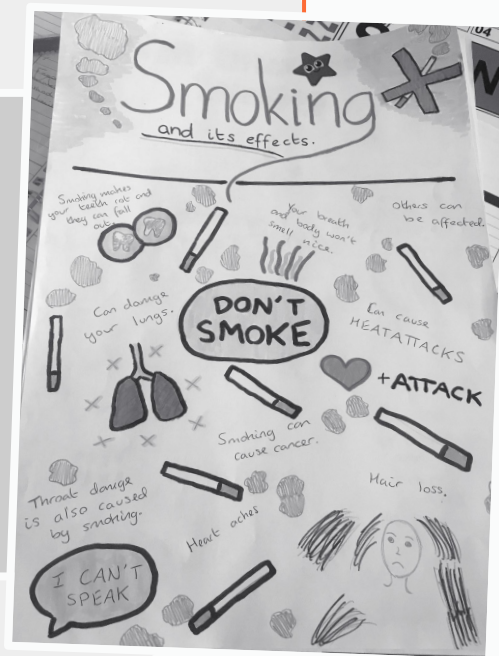 Smoking
and its effects.
Smoking makes
your teeth rot and
they can fall
out.
Your breath
and body won't
smell nice.
Others can
be affected.
Can damge
your lungs.
DON'T
SMOKE
Can cause
HEATATTACKS
+ATTACK
Smoking can
cause cancer.
Throat damge
is also caused
by smoking.
Heart aches
Hair loss.
I CAN'T
SPEAK